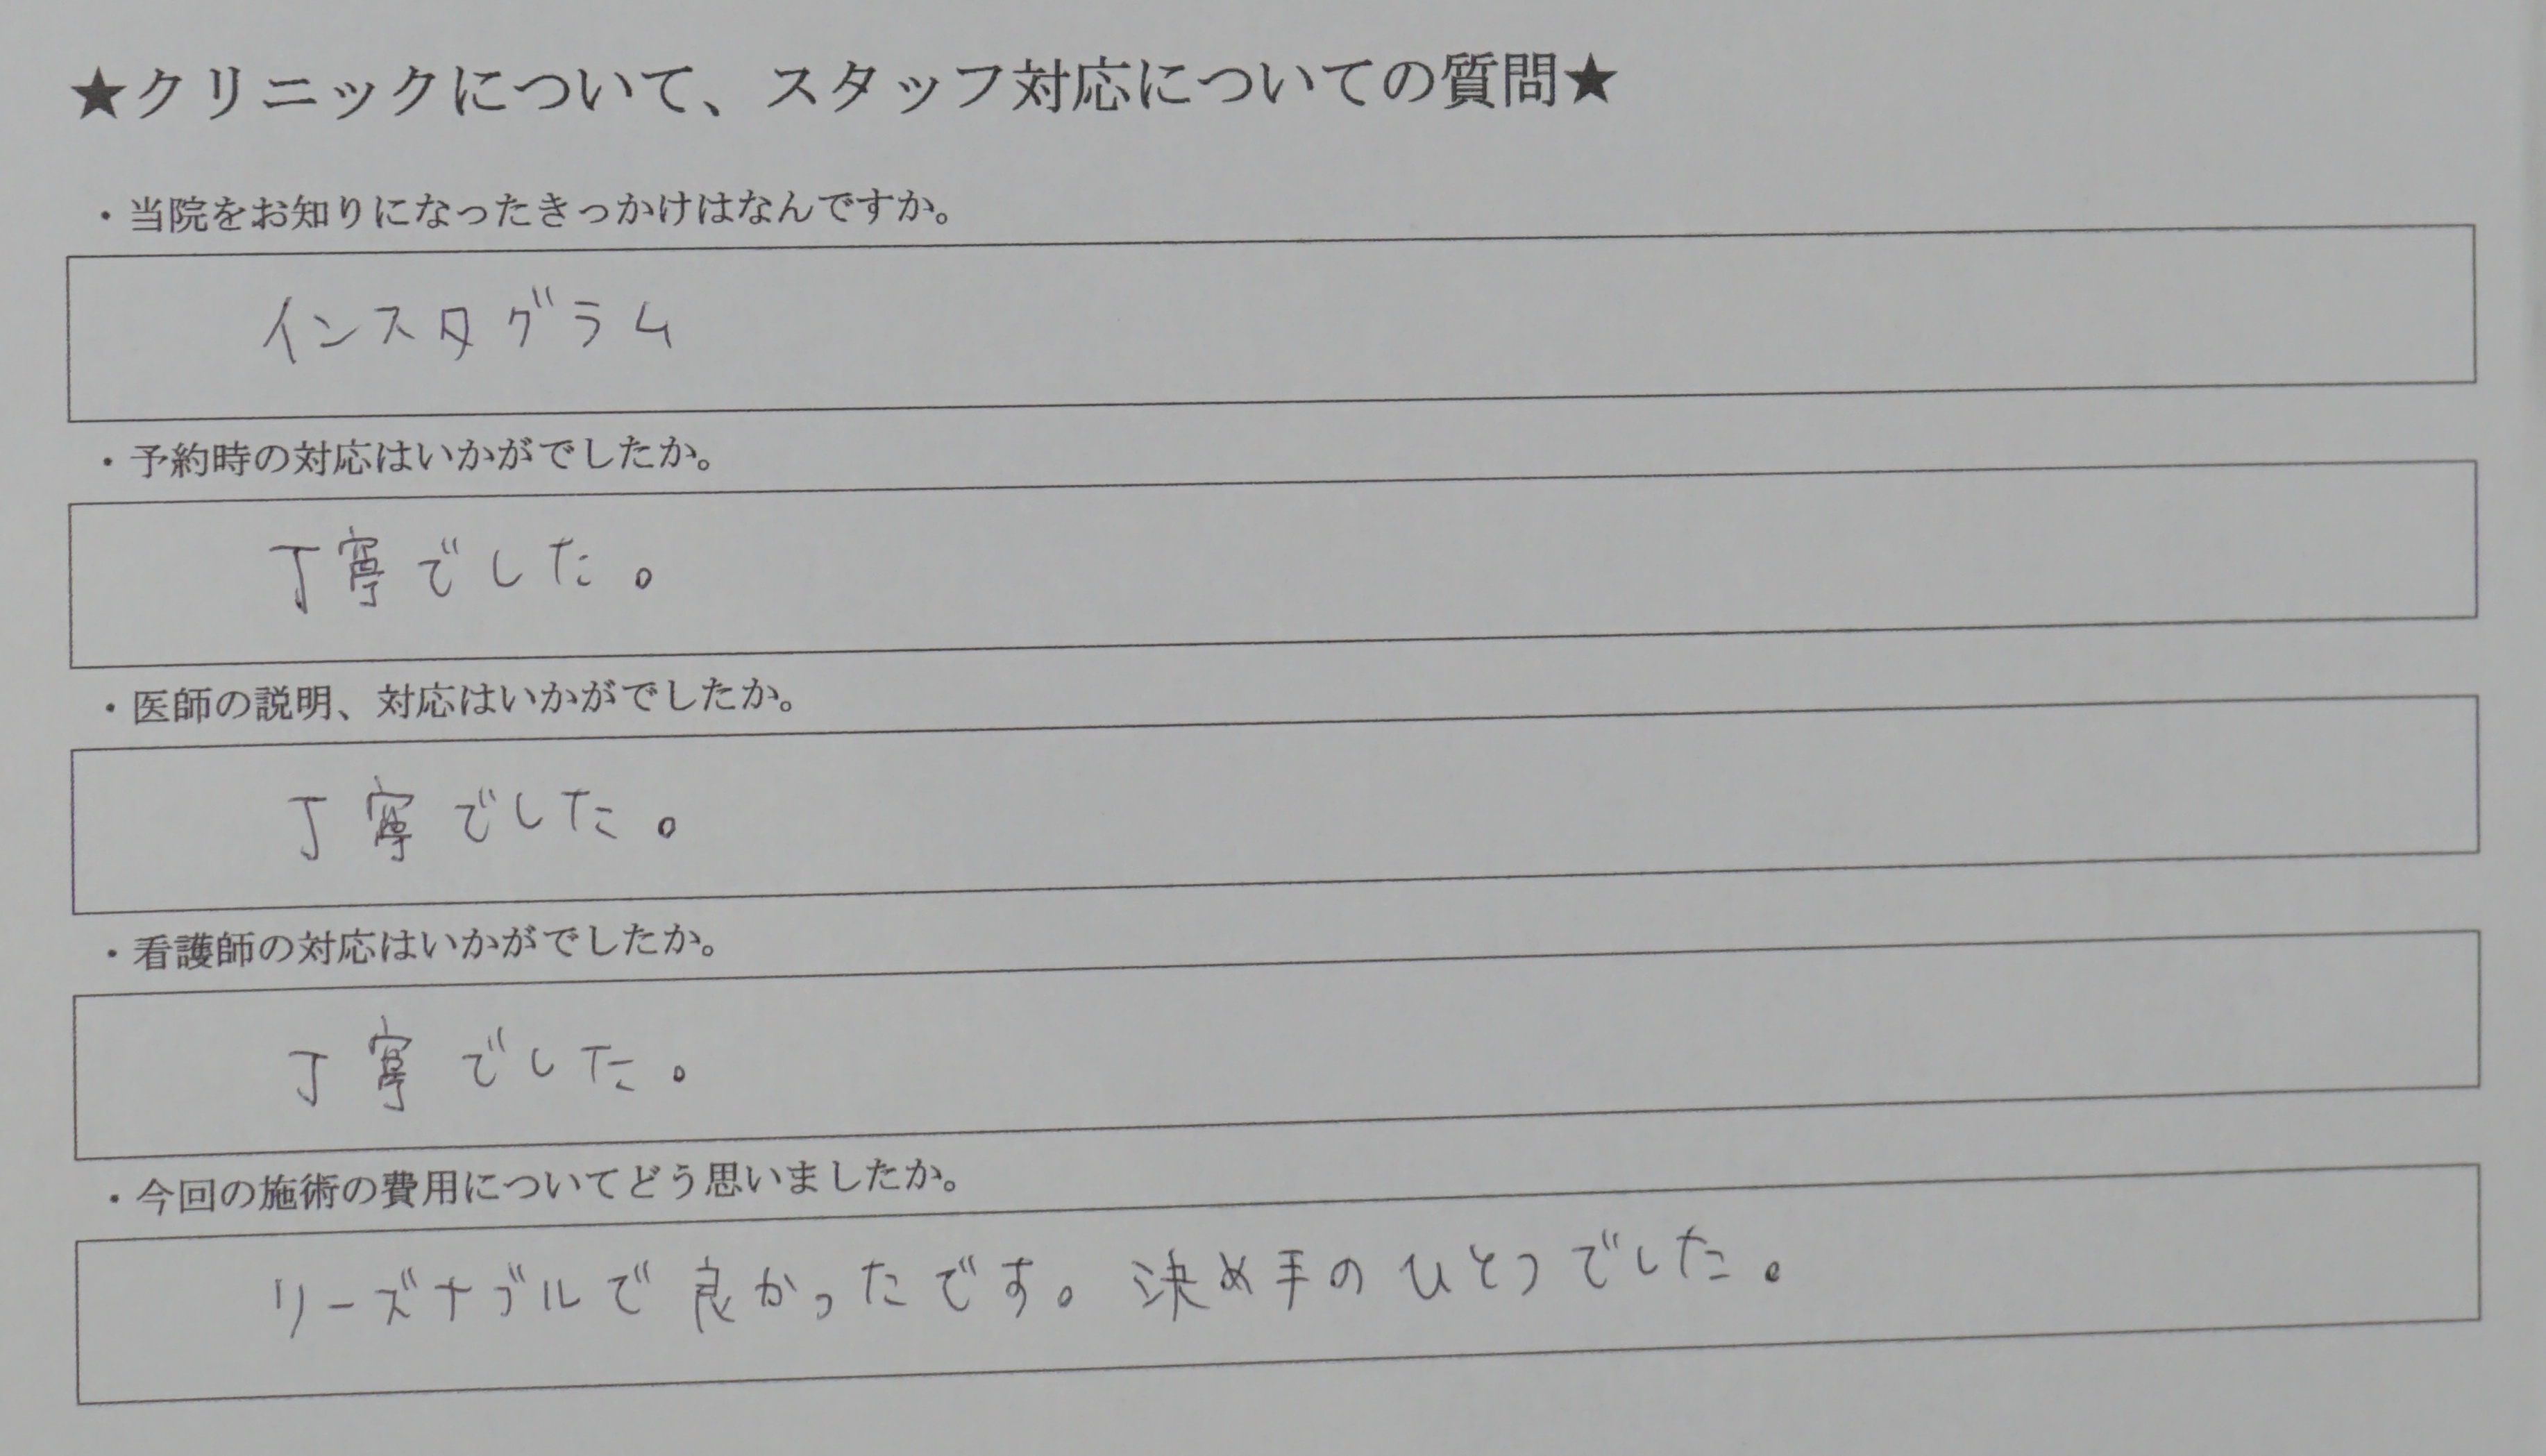 ★クリニックについて、スタッフ対応についての質問★
・当院をお知りになったきっかけはなんですか。
インスタグラム
・予約時の対応はいかがでしたか。
丁寧でした。
・医師の説明、対応はいかがでしたか。
丁寧でした。
・看護師の対応はいかがでしたか。
丁寧でした。
・今回の施術の費用についてどう思いましたか。
リーズナブルで良かったです。決め手のひとつでした。